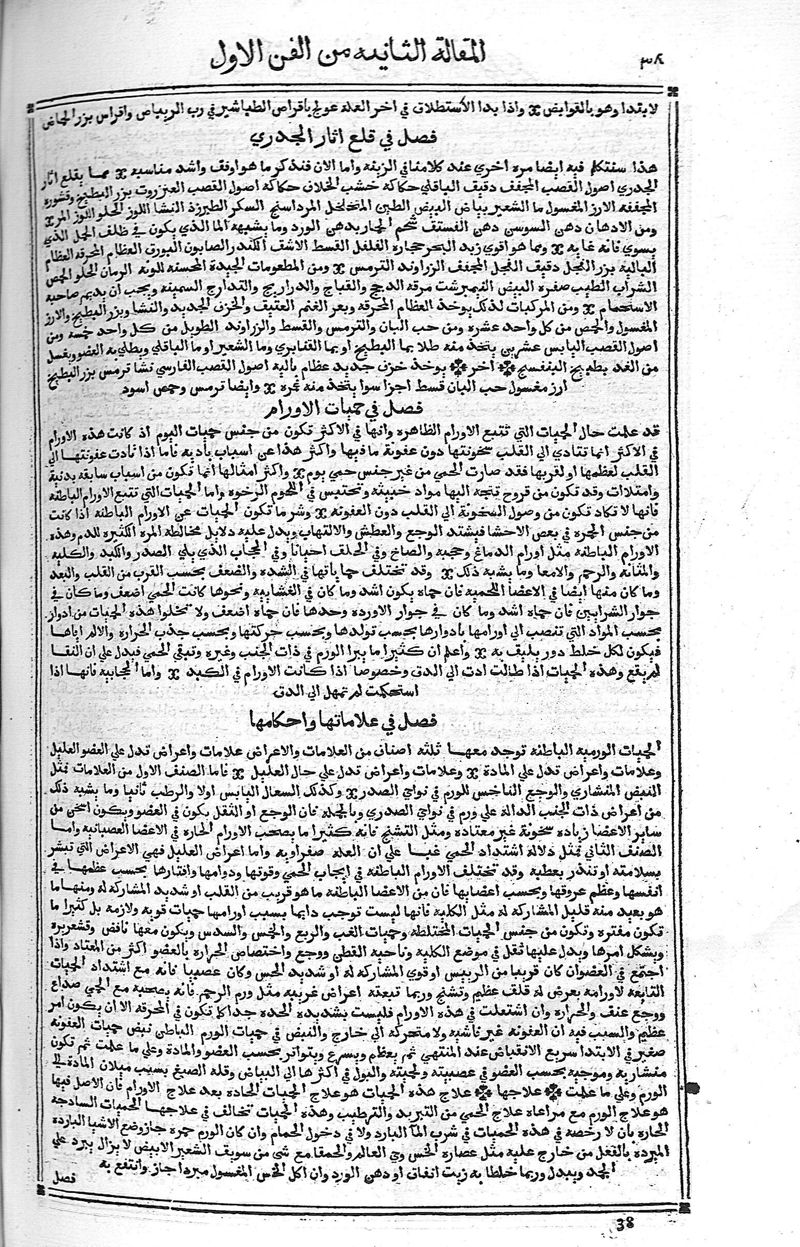 ٣٨ المقالة الثانيه من الفن الاول
لابتدا وهو بالقوابض واذا بدا الاستطلاق في اخر العله عولج باقراص الطباشير في رب الريباس واقراس بزر الحماض
فصل في قلع اثار الجدري
هذا سنتكلم فيه ايضا مره اخري عند كلامنا في الزينه واما الان فنذكر ما هو اوفق واشد مناسبه مما يقلع اثار
الجدري اصول القصب المجفف دقيق الباقلي حكاكة خشب الخلاف حكاكة اصول القصب العنزروت بزر البطيخ وقشوره
المجففه الارز المغسول ما الشعير بياض البيض الطين المتخلخل المرداسنج السكر الطبرزذ النشا اللوز الحلو اللوز المر
ومن الادهان دهن السوسن دهن الفستق شحم الحمار بدهن الورد وما يشبهه الما الذي يكون في ظلف الجمل الذي
يسوي فانه غايه ومما هو اقوي زبد البحر حجاره الفلفل القسط الاشق الكندر الصابون البورق العظام المحرقه العظام
الباليه بزر الفجل دقيق الفجل المجفف الزراوند الترمس ومن المطعومات الجيدة المحسنه للونه الرمان الحلو الحمص
الشراب الطيب صفره البيض النيمبرشت مرقه الدجج والقباج والدراريج والتدارج السمينه ويجب ان يديم صاحبه
الاستحمام ومن المركبات لذلك يوخذ العظام المحرقه وبعر الغنم العتيق والخزف الجديد والنشا وبزر البطيخ والارز
المغسول والحمص من كل واحد عشره ومن حب البان والترمس والقسط والزراوند الطويل من كل واحد خمسه ومن
اصول القصب اليابس عشرين يتخذ منه طلا بما البطيخ او بما القنابري وما الشعير او ما الباقلي ويطلي به العضو ويغسل
من الغد بطبيخ البنفسج اخر يوخذ خزف جديد عظام باليه اصول القصب الفارسي نشا ترمس بزر البطيخ
ارز مغسول حب البان قسط اجزا سوا يتخذ منه غمره وايضا ترمس وحمص اسود
فصل في حميات الاورام
قد علمت حال الحميات التي تتبع الاورام الظاهره وانها في الاكثر تكون من جنس حميات اليوم اذ كانت هذه الاورام
في الاكثر انما تتادي الي القلب سخونتها دون عفونة ما فيها واكثر هذا عن اسباب باديه فاما اذا تادت عفونتها الي
القلب لعظمها او لقربها فقد صارت الحمي من غير جنس حمي يوم واكثر امثالها انما تكون من اسباب سابقه بدنية
وامتلات وقد تكون من قروح يتجه اليها مواد خبيثه وتحتبس في اللحوم الرخوه واما الحميات التي تتبع الاورام الباطنه
فانها لا تكاد تكون من وصول السخونة الي القلب دون العفونه وشر ما تكون الحميات عن الاورام الباطنه اذا كانت
من جنس الحمره في بعض الاحشا فيشتد الوجع والعطش والالتهاب ويدل عليه دلايل مخالطة المره الكثيره للدم وهذه
الاورام الباطنه مثل اورام الدماغ وحجبه والصماخ وفي الحلق احيانا وفي الحجاب الذي يلي الصدر والكبد والكليه
والمثانه والرحم والامعا وما يشبه ذلك وقد تختلف حمياتها في الشده والضعف بحسب القرب من القلب والبعد
وما كان منها ايضا في الاعضا اللحميه فان حماه يكون اشد وما كان في الغشاييه ونحوها كانت الحمي اضعف وما كان في
جوار الشرايين فان حماه اشد وما كان في جوار الاورده وحدها فان حماه اضعف ولا تخلوا هذه الحميات من ادوار
بحسب المواد التي تنصب الي اورامها بادوارها بحسب تولدها وبحسب حركتها وبحسب جذب الحرارة والالم اياها
فيكون لكل خلط دور يليق به واعلم ان كثيرا ما يبرا الورم في ذات الجنب وغيره وتبقي الحمي فيدل علي ان النقا
لم يقع وهذه الحميات اذا طالت ادت الي الدق وخصوصا اذا كانت الاورام في الكبد واما الحجابيه فانها اذا
استحكمت لم تمهل الي الدق
فصل في علاماتها واحكامها
الحميات الورميه الباطنه توجد معها ثلثه اصناف من العلامات والاعراض علامات واعراض تدل علي العضو العليل
وعلامات واعراض تدل علي المادة وعلامات واعراض تدل علي حال العليل فاما الصنف الاول من العلامات فمثل
النبض المنشاري والوجع الناخس للورم في نواحي الصدر وكذلك السعال اليابس اولا والرطب ثانيا وما يشبه ذلك
من اعراض ذات الجنب الدالة علي ورم في نواحي الصدر وبالجمله فان الوجع او الثقل يكون في العضو ويكون اسخن من
ساير الاعضا زياده سخونة غير معتاده ومثل التشنج فانه كثيرا ما يصحب الاورام الحاره في الاعضا العصبانيه واما
الصنف الثاني فمثل دلالة اشتداد الحمي غبا علي ان العلة صفراويه واما اعراض العليل فهي الاعراض التي تبشر
بسلامته او تنذر بعطبه وقد تختلف الاورام الباطنه في ايجاب الحمي وقوتها ودوامها وافتارها بحسب عظمها في
انفسها وعظم عروقها وبحسب اعصابها فان من الاعضا الباطنه ما هو قريب من القلب او شديد المشاركه له ومنها ما
هو بعيد منه قليل المشاركه له مثل الكليه فانها ليست توجب دايما بسبب اورامها حميات قويه ولازمه بل كثيرا ما
تكون مفتره وتكون من جنس الحميات المختلطه وحميات الغب والربع والخمس والسدس ويكون معها نافض وقشعريره
ويشكل امرها ويدل عليها ثقل في موضع الكليه وناحيه القطن ووجع واختصاص الحراره بالعضو اكثر من المعتاد واذا
اجتمع في العضو ان كان قريبا من الرييس او قوي المشاركه له او شديد الحس وكان عصبيا فانه مع اشتداد الحميات
التابعه لاورامه يعرض له قلق عظيم وتشنج وربما تبعته اعراض غريبه مثل ورم الرحم فانه يصحبه مع الحمي صداع
ووجع عنق والحراره وان اشتعلت في هذه الاورام فليست بشديده الحدة جدا كما تكون في المحرقه الا ان يكون امر
عظيم والسبب فيه ان العفونه غير فاشيه ولا متحركة الي خارج والنبض في حميات الورم الباطن نبض حميات العفونه
صغير في الابتدا سريع الانقباض عند المنتهي ثم يعظم ويسرع ويتواتر بحسب العضو والمادة وعلي ما علمت ثم تكون
منشاريه وموجيه بحسب العضو في عصبيته ولحميته والبول في اكثرها الي البياض وقلة الصبغ بسبب ميلان المادة الي
الورم وعلي ما علمت علاجها علاج هذه الحميات هو علاج الحميات الحادة بعد علاج الاورام فان الاصل فيها
هو علاج الورم مع مراعاه علاج الحمي من التبريد والترطيب وهذه الحميات تخالف في علاجها الحميات الساذجه
الحاره بان لا رخصه في هذه الحميات في شرب الما البارد ولا في دخول الحمام وان كان الورم حمرة جاز وضع الاشيا البارده
المبرده بالفعل من خارج عليه مثل عصاره الخس وحي العالم والحمقا مع شي من سويق الشعير الابيض لا يزال يبرد علي
الجمد ويبدل وربما خلطا به زيت انفاق او دهن الورد وان اكل الخس المغسول مبردا جاز وانتفع به
فصل
38